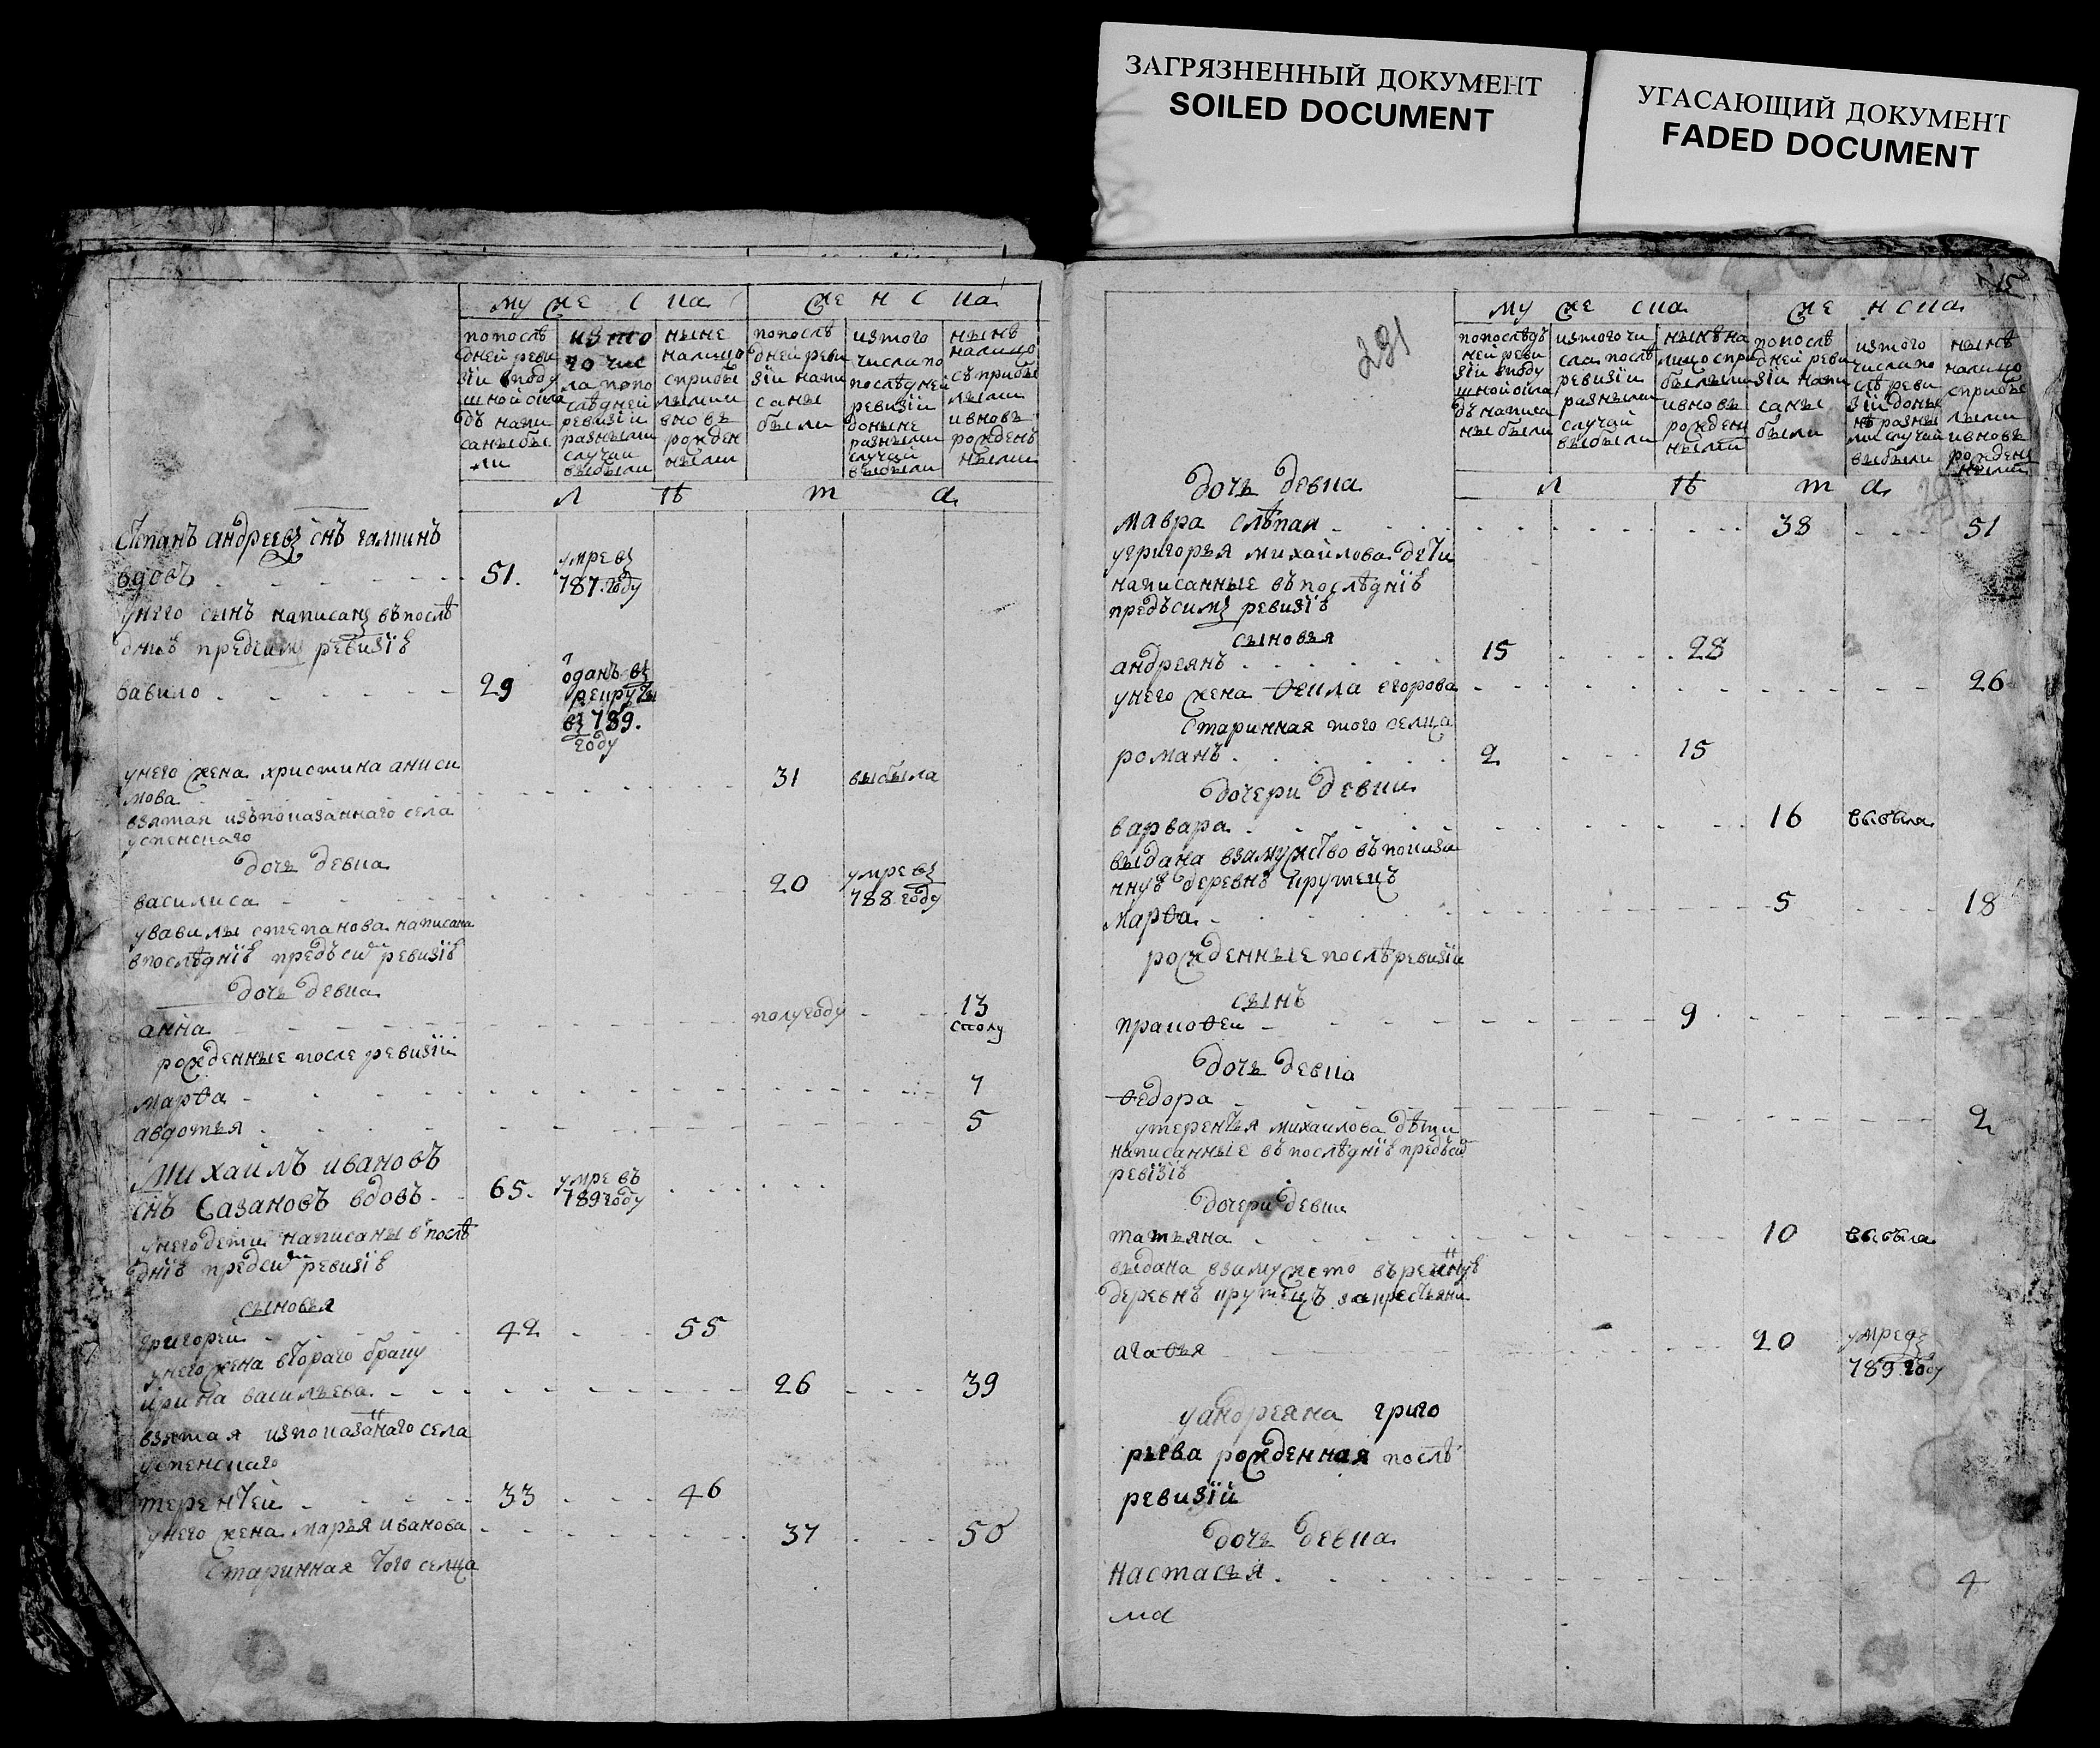 ЗАГРЯЗНЕННЫЙ ДОКУМЕНТ
SOILED DOCUMENT
УГАСАЮЩИЙ ДОКУМЕНТ
FADED DOCUMENT
муже ска
женска
попослѣ
дней реви
зіи вподу
шной окла
дъ напи
саны бы
ли
изто
го чис
ла попо
слѣдней
ревизіи
разными
случаи
выбыли
ныне
налицо
сприбы
лыми
вновь
рожден
ными
попослѣ
дней реви
зіи напи
саны
были
изтого
числа по
послѣдней
ревизіи
доныне
разными
случаи
выбыли
нынѣ
налицо
съ прибы
лыми
ивновь
рожденъ
ными
л ѣ т а
Степанъ андреевъ снъ галтинъ
вдовъ 51. умре въ
787. году
унего сынъ написанъ въпослѣ
дніѣ предсимъ ревизіѣ
вавило 29 отданъ въ
рекруты
въ 789.
году
унего жена христина аниси
мова 31 выбыла
взятая изъпоказаннаго села
успенскаго
дочь девка
василиса 20 умре въ
788. году
увавилы степанова написана
впослѣдніѣ предъсимъ ревизіѣ
дочь девка
анна полугоду 13
сполу
рожденные после ревизіи
марѳа 7
авдотья 5
Михайлъ ивановъ
снъ Сазановъ вдовъ 65. умре въ
789 году
унего дети написаны впослѣ
дніѣ предсимъ ревизіѣ
сыновья
григорей 42 55
унего жена втораго браку
ирина васильева 26 39
взятая изпоказаннаго села
успенскаго
терентей 33 46
унего жена марья иванова 37 50
Старинная того селца
231
25
муже ска
женска
попослѣдъ
ней реви
зіи вподу
шной окла
дъ написа
ны были
изтого чи
сла послѣ
ревизіи
разными
случаи
выбыли
нынѣ на
лицо спри
былыми
ивновь
рожден
ными
попослѣ
дней реви
зіи напи
саны
были
изтого
числапо
слѣ реви
зіи доны
нѣ разны
ми случаи
выбыли
нынѣ
налицо
сприбы
лыми
ивновь
рожден
ными
л ѣ т а
дочь девка
мавра слѣпая 38 51
угригорья михайлова дети
написанные въпослѣдніѣ
предъсимъ ревизіѣ
сыновья
андреянъ 15 28
унего жена ѳекла егорова 26
старинная того селца
романъ 2 15
дочери девки
варвара 16 выбыла
выдана взамужство въпокази
ннуѣ деревнѣ крутецъ
марѳа 5 18
рожденные послѣ ревизіи
сынъ
пракоѳеи 9
дочь девка
ѳедора 2
утерентья михаилова дѣти
написанные въпослѣдніѣ предъсимъ
ревізіѣ
дочери девки
татьяна 10 выбыла
выдана взамужство въреченнуѣ
деревнѣ крутецъ за крестьяни
агаѳья 20 умре въ
789. году
уандреяна григо
рьева рожденная послѣ
ревизій
дочь девка
настасья 4